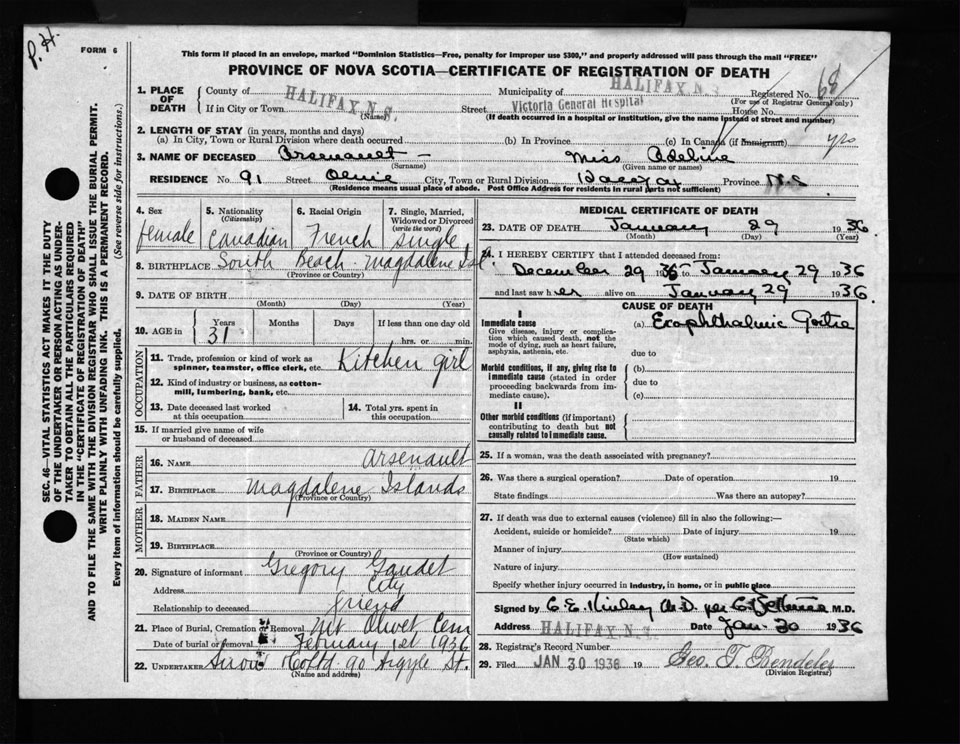 P.H.
FORM 6
This form if placed in an envelope, marked "Dominion Statistics—Free, penalty for improper use $300," and properly addressed will pass through the mail "FREE"
PROVINCE OF NOVA SCOTIA—CERTIFICATE OF REGISTRATION OF DEATH
68
1. PLACE OF DEATH
County of HALIFAX N.S. Municipality of HALIFAX N.S. Registered No.
(For use of Registrar General only)
If in City or Town (Name) Street Victoria General Hospital House No.
(If death occurred in a hospital or institution, give the name instead of street and number)
2. LENGTH OF STAY (in years, months and days)
(a) In City, Town or Rural Division where death occurred (b) In Province (c) In Canada (if Immigrant) yrs
3. NAME OF DECEASED Arsenault (Surname) Miss Adeline (Given name or names)
RESIDENCE No. 91 Street City, Town or Rural Division Halifax Province N.S
(Residence means usual place of abode. Post Office Address for residents in rural parts not sufficient)
4. Sex female
5. Nationality (Citizenship) Canadian
6. Racial Origin French
7. Single, Married, Widowed or Divorced (write the word) single
8. BIRTHPLACE South Beach - Magdalene Isl.
(Province or Country)
9. DATE OF BIRTH (Month) (Day) (Year)
10. AGE in Years 31 Months Days If less than one day old hrs. or min.
OCCUPATION
11. Trade, profession or kind of work as spinner, teamster, office clerk, etc. Kitchen girl
12. Kind of industry or business, as cotton-mill, lumbering, bank, etc.
13. Date deceased last worked at this occupation
14. Total yrs. spent in this occupation
15. If married give name of wife or husband of deceased
FATHER
16. NAME Arsenault
17. BIRTHPLACE Magdalene Islands
(Province or Country)
MOTHER
18. MAIDEN NAME
19. BIRTHPLACE
(Province or Country)
20. Signature of informant Gregory Gaudet
Address City
Relationship to deceased friend
21. Place of Burial, Cremation or Removal Mt Olivet Cem
Date of burial or removal February 1st 1936
22. UNDERTAKER Snow & Co Ltd 90 Argyle St.
(Name and address)
MEDICAL CERTIFICATE OF DEATH
23. DATE OF DEATH January 29 1936
(Month) (Day) (Year)
24. I HEREBY CERTIFY that I attended deceased from:
December 29 1935 to January 29 1936
and last saw her alive on January 29 1936.
CAUSE OF DEATH
I
Immediate cause
Give disease, injury or complication which caused death, not the mode of dying, such as heart failure, asphyxia, asthenia, etc.
(a) Exophthalmic Goitre
due to
Morbid conditions, if any, giving rise to immediate cause (stated in order proceeding backwards from immediate cause).
(b)
due to
(c)
II
Other morbid conditions (if important) contributing to death but not causally related to immediate cause.
25. If a woman, was the death associated with pregnancy?
26. Was there a surgical operation? Date of operation 19
State findings Was there an autopsy?
27. If death was due to external causes (violence) fill in also the following:—
Accident, suicide or homicide? Date of injury 19
(State which)
Manner of injury
(How sustained)
Nature of injury
Specify whether injury occurred in industry, in home, or in public place
Signed by C.E. Kinley M.D. per M.D.
Address HALIFAX N.S. Date Jan-30 1936
28. Registrar's Record Number
29. Filed JAN 30 1936 19 Geo. T. Bendeler
(Division Registrar)
SEC. 46—VITAL STATISTICS ACT MAKES IT THE DUTY
OF THE UNDERTAKER OR PERSON ACTING AS UNDER-
TAKER TO OBTAIN ALL THE PARTICULARS REQUIRED
IN THE "CERTIFICATE OF REGISTRATION OF DEATH"
AND TO FILE THE SAME WITH THE DIVISION REGISTRAR WHO SHALL ISSUE THE BURIAL PERMIT.
WRITE PLAINLY WITH UNFADING INK. THIS IS A PERMANENT RECORD.
Every item of information should be carefully supplied. (See reverse side for instructions.)